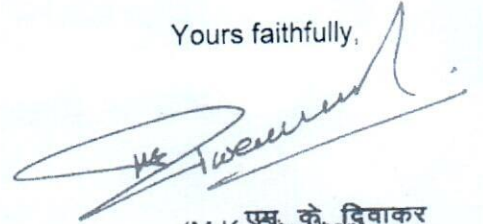 Yours faithfully,
एस. के. दिवाकर